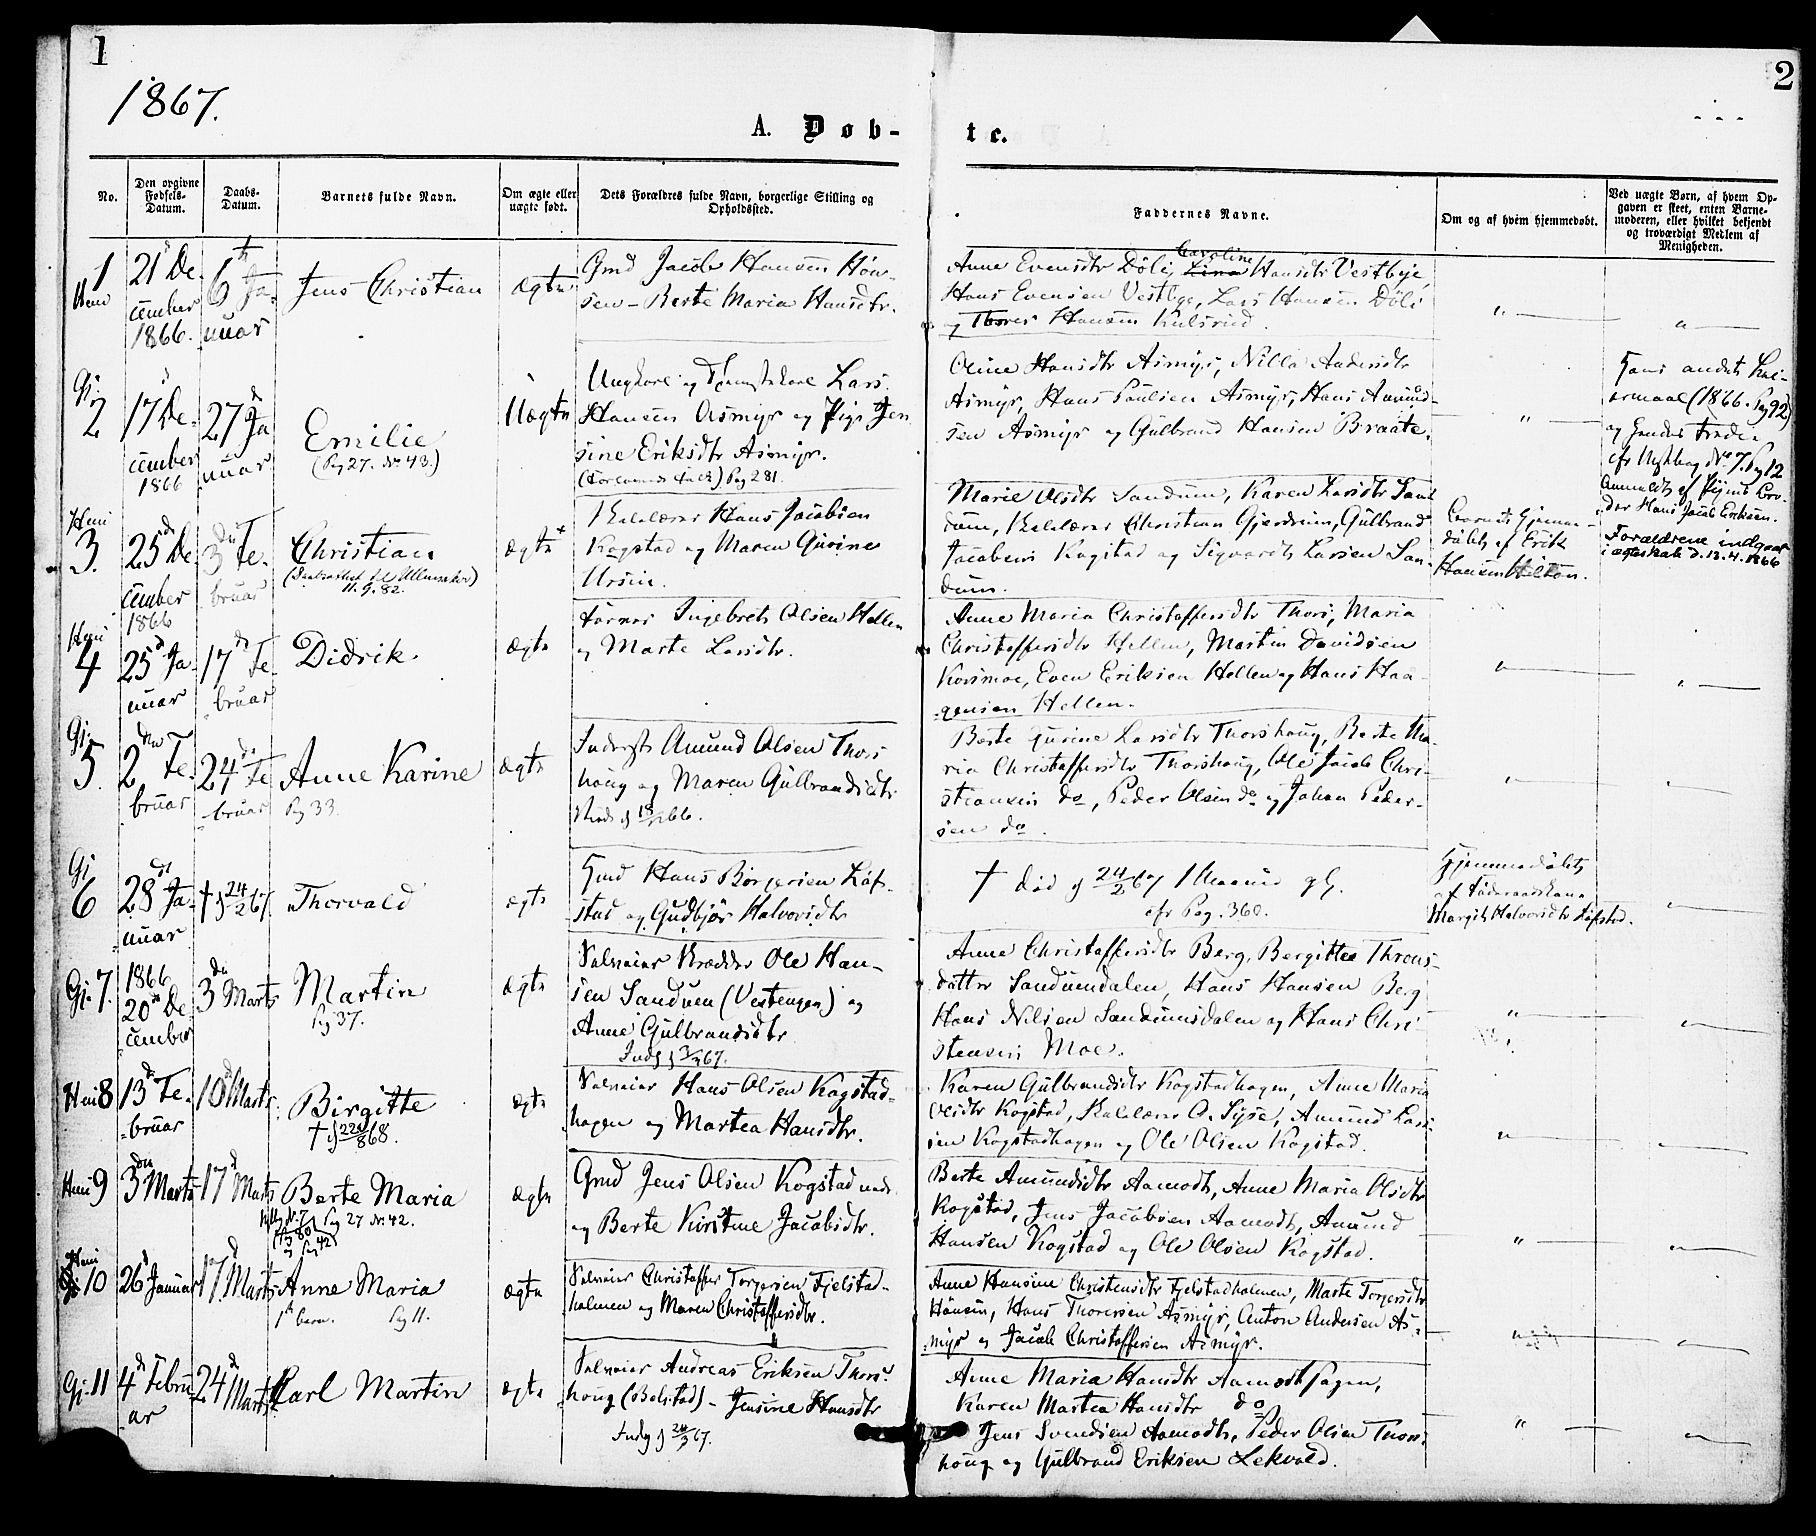 1
2
1867.
A. Døb-
te.
No.
Den opgivne Fødsels-Datum.
Daabs-Datum.
Barnets fulde Navn.
Om ægte eller uægte født.
Dets Forældres fulde Navn, borgerlige Stilling og Opholdssted.
Faddernes Navne.
Om og af hvem hjemmedøbt.
Ved uægte Børn, af hvem Op-
gaven er skeet, enten Barne-
moderen, eller hvilket bekjendt
og troværdigt Medlem af
Menigheden.
1
21 De-
cember
1866.
6 Ja-
nuar
Jens Christian
ægte
Gmd Jacob Hansen
Berte Maria Hansdtr.
Anne Evensdtr Döli, Caroline Hansdtr Vestbye,
Hans Evensen Vestbye, Lars Hansen Döli
og Thores Hansen Kulsrud.
Gj.
2
17 De-
cember
1866
27 Ja
nuar
Emilie
(Pag 27. No 43.)
Uægte
Ungkarl og Lars
Hansen Asmyr og Pige Jen
sine Eriksdtr Asmyr.
Pag 281.
Oline Hansdtr Asmyr, Nilla Andersdtr
Asmyr, Hans Paulsen Asmyr, Hans Amund-
sen Asmyr og Gulbrand Hansen Braate.
Hans andet Lei-
ermaal (1866. Pag 92)
og hendes tredie
cfr No 7. Pag 12
Anmeldt af Pigens Bro-
der Hans Jacob Eriksen.
Forældrene indgaar
i ægteskab d. 13.4.1866
3.
25 De-
cember
1866
3 Fe-
bruar
Christian
11.9.82.
ægte
Kirkelærer Hans Jacobsen
Kogstad og Maren Gurine
Ursin.
Marie Olsdtr Sandum, Karen Larsdtr San
dum, Kirkelærer Christian Gjerdrum, Gulbrand
Jacobsen Kogstad og Sigvardt Larsen San-
dum.
Barnet hjemme-
døbt af Erik
Hansen Hilton.
4
25 Ja-
nuar
17 Fe-
bruar
Didrik
ægte
Ingebret Olsen Hellen
og Marte Larsdtr.
Anne Maria Christoffersdtr Thors, Maria
Christoffersdtr Hellen, Martin Davidsen
Korsmoe, Even Eriksen Hellen og Hans Haa-
gensen Hellen.
Gj.
5
2 Fe-
bruar
24 Fe
bruar
Anne Karine
Pag 33.
ægte
Inderst Amund Olsen Thors
houg og Maren Gulbrandsdtr
Berte Gurine Larsdtr Thorshoug, Berte Ma-
ria Christoffersdtr Thorshoug, Ole Jacob Chri-
stiansen do, Peder Olsen do og Johan Peder-
sen do.
Gj
6
28 Ja-
nuar
† 24/2 67.
Thorvald
ægte
Hmd Hans Börgersen Löf-
stad og Gudbjør Halvorsdtr
† død 24/2 67
cfr Pag. 360.
Hjemmedøbt
af
Margit Halvorsdtr Löfstad.
Gj. 7.
1866
20 De
cember
3 Marts
Martin
Pag 37.
ægte
Selveier Skrædder Ole Han-
sen Sanduen (Vestengen) og
Anne Gulbrandsdtr
Anne Christoffersdtr Berg, Bergitte Throns-
datter Sanduendalen, Hans Hansen Berg
Hans Nilsen Sanduensdalen og Hans Chri-
stensen Moe.
8
13 Fe-
bruar
10 Marts
Birgitte
ægte
Selveier Hans Olsen Kogstad-
hagen og Martea Hansdtr.
Karen Gulbrandsdtr Kogstadhagen, Anne Maria
Olsdtr Kogstad, Kirkelærer A. Syse, Amund Lar-
sen Kogstadhagen og Ole Olsen Kogstad.
9
3 Marts
17 Marts
Berte Maria
Pag 27 No 42.
ægte
Gmd Jens Olsen Kogstad
og Berte Kirstine Jacobsdtr.
Berte Amundsdtr Aamodt, Anne Maria Olsdtr
Kogstad, Jens Jacobsen Aamodt, Amund
Hansen Kogstad og Ole Olsen Kogstad.
10
26 Januar
17 Marts
Anne Maria
Pag 11.
ægte
Selveier Christoffer Torgersen Fjelstad-
holmen og Maren Christoffersdtr.
Anne Hansine Christensdtr Fjelstadholmen, Marte Torgersdtr
Hansen, Hans Thoresen Asmyr, Anton Andersen As-
myr og Jacob Christoffersen Asmyr.
Gj. 11
4 Febru
ar
24 Marts
Carl Martin
ægte
Selveier Andreas Eriksen Thors-
houg (Bolstad) - Jensine Hansdtr
Anne Maria Hansdtr Aamodthagen,
Karen Martea Hansdtr do
Jens Svendsen Aamodt, Peder Olsen Thors-
houg og Gulbrand Eriksen Lekvold.